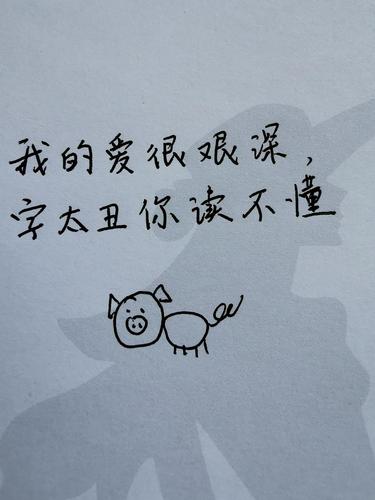 我的爱很艰深，
字太丑你读不懂